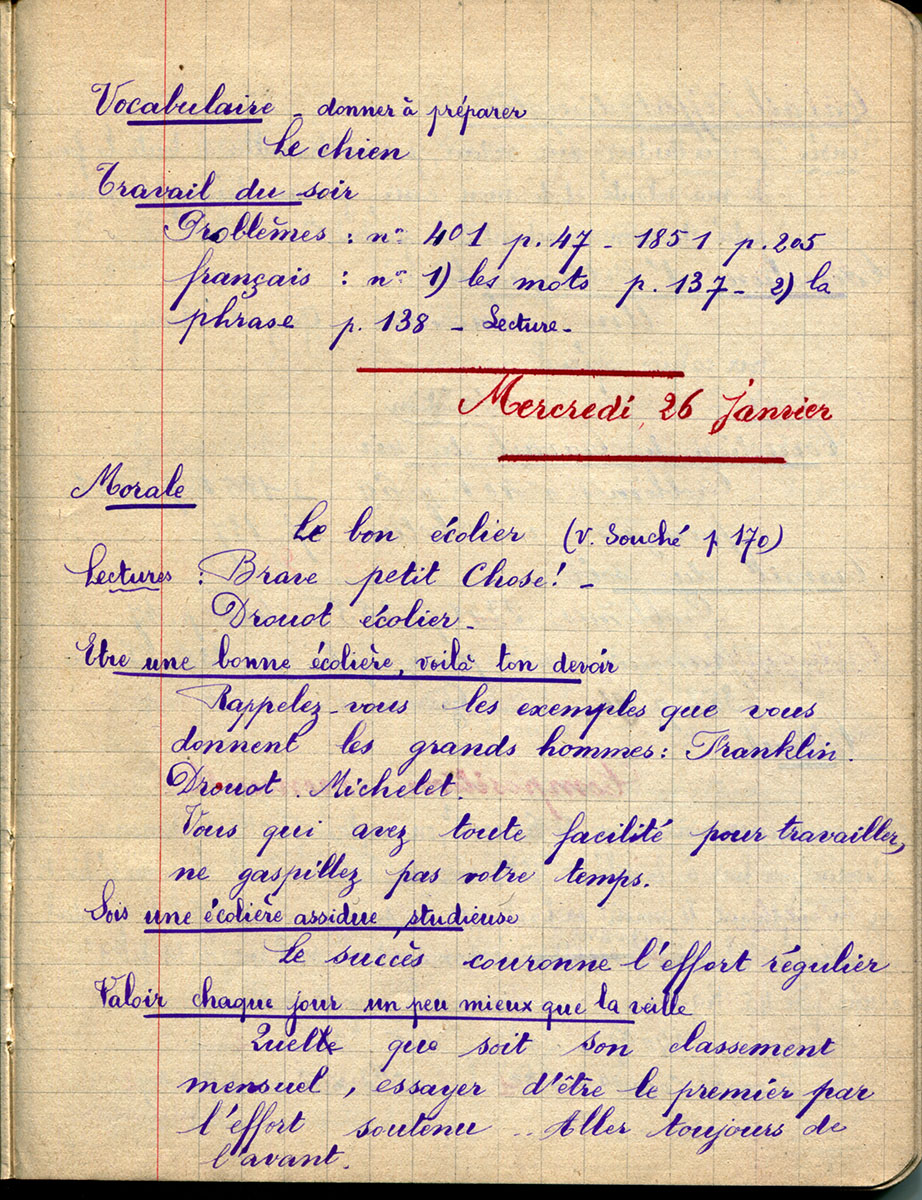 Vocabulaire - donner à préparer
Le chien
Travail du soir
Problèmes : nos 401 p. 47 - 1851 p. 205
français : nos 1) les mots p. 137 - 2) la
phrase p. 138 - Lecture -
Mercredi 26 janvier
Morale
Le bon écolier (v. Souché p 170)
Lectures : Brave petit Chose! -
Drouot écolier -
Etre une bonne écolière, voilà ton devoir
Rappelez-vous les exemples que vous
donnent les grands hommes : Franklin.
Drouot. Michelet.
Vous qui avez toute facilité pour travailler,
ne gaspillez pas votre temps.
Sois une écolière assidue, studieuse
Le succès couronne l'effort régulier
Valoir chaque jour un peu mieux que la veille
Quel que soit son classement
mensuel, essayer d'être le premier par
l'effort soutenu .. Aller toujours de
l'avant.